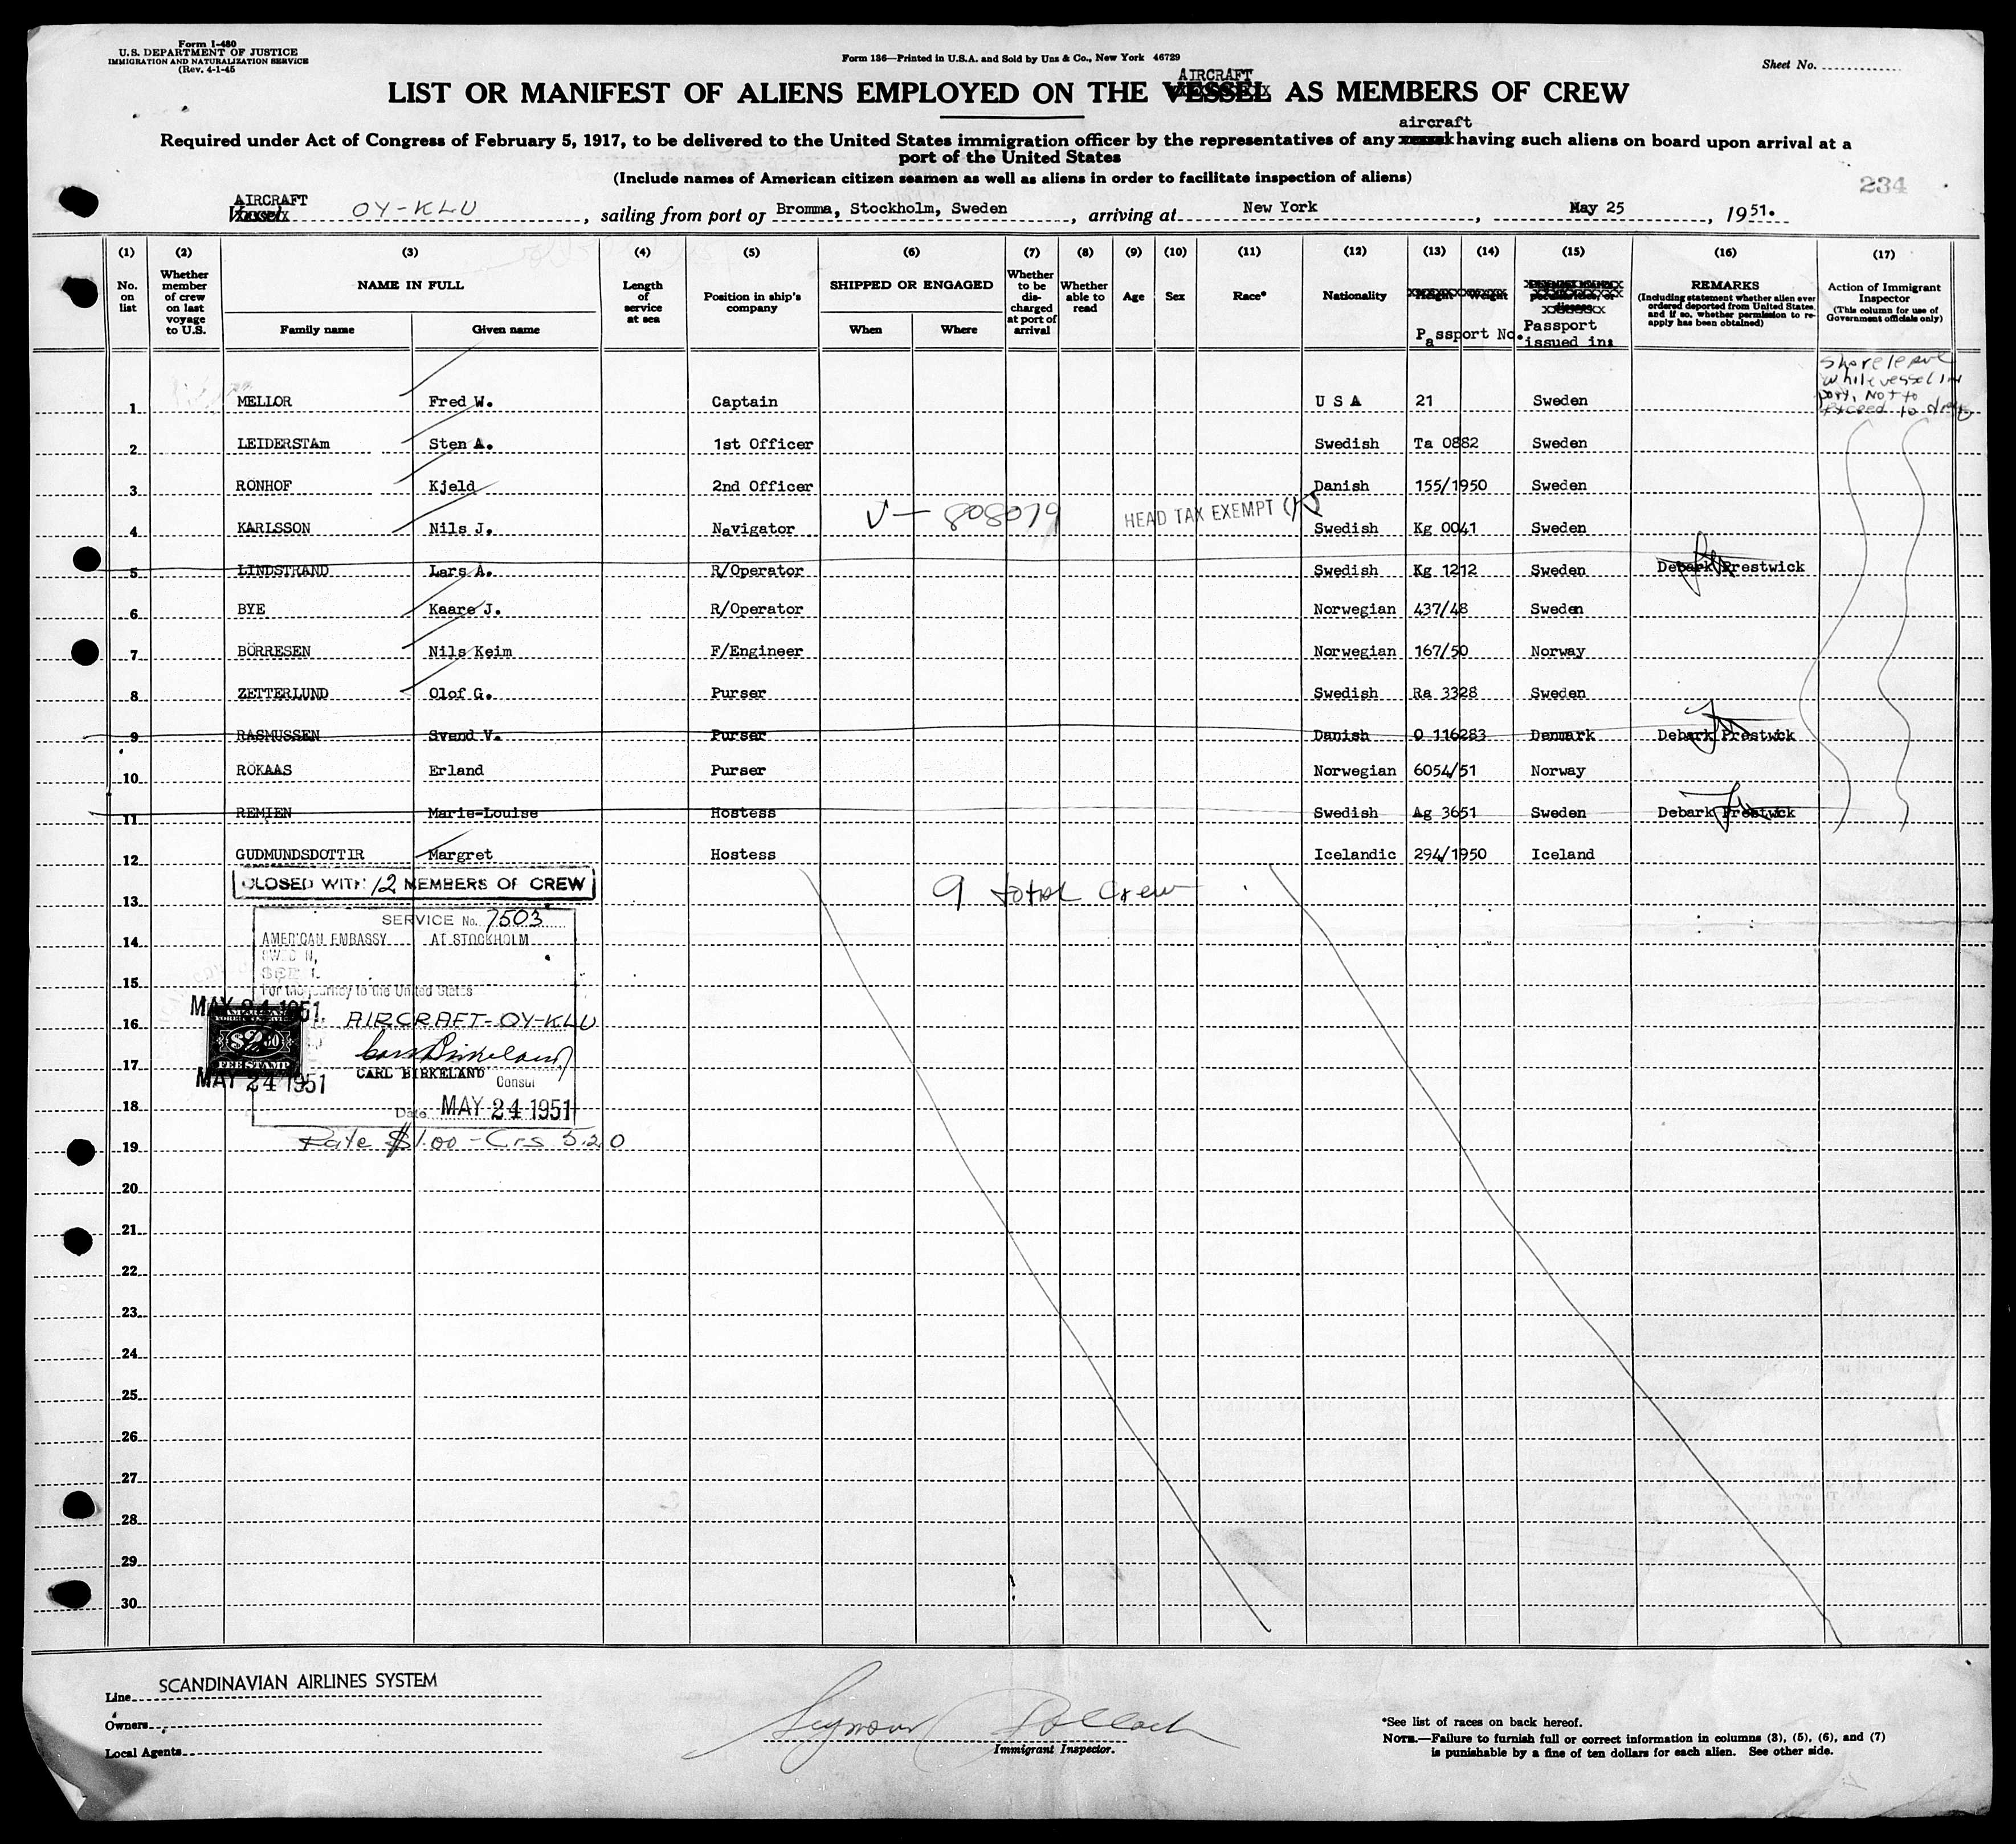 Form 1-480
U.S. DEPARTMENT OF JUSTICE
IMMIGRATION AND NATURALIZATION SERVICE
(Rev. 4-1-45
Form 136—Printed in U.S.A. and Sold by Unz & Co., New York 46729
Sheet No.
AIRCRAFT
LIST OR MANIFEST OF ALIENS EMPLOYED ON THE VESSEL AS MEMBERS OF CREW
aircraft
Required under Act of Congress of February 5, 1917, to be delivered to the United States immigration officer by the representatives of any vessel having such aliens on board upon arrival at a
port of the United States
(Include names of American citizen seamen as well as aliens in order to facilitate inspection of aliens)
234
AIRCRAFT
Vessel OY-KLU, sailing from port of Bromma, Stockholm, Sweden, arriving at New York, May 25, 1951.
(1) (2) (3) (4) (5) (6) (7) (8) (9) (10) (11) (12) (13) (14) (15) (16) (17)
No. on list
Whether member of crew on last voyage to U.S.
NAME IN FULL
Family name Given name
Length of service at sea
Position in ship's company
SHIPPED OR ENGAGED
When Where
Whether to be discharged at port of arrival
Whether able to read
Age
Sex
Race*
Nationality
Height Weight
Passport No.
Passport issued in:
REMARKS
(Including statement whether alien ever ordered deported from United States, and if so, whether permission to reapply has been obtained)
Action of Immigrant Inspector
(This column for use of Government officials only)
Shore leave
while vessel in
port, not to
exceed 10 days
1 MELLOR Fred W. Captain U S A 21 Sweden
2 LEIDERSTAm Sten A. 1st Officer Swedish Ta 0882 Sweden
3 RONHOF Kjeld 2nd Officer Danish 155/1950 Sweden
V- 808079 HEAD TAX EXEMPT
4 KARLSSON Nils J. Navigator Swedish Kg 0041 Sweden
5 LINDSTRAND Lars A. R/Operator Swedish Kg 1212 Sweden Debark Prestwick
6 BYE Kaare J. R/Operator Norwegian 437/48 Sweden
7 BÖRRESEN Nils Keim F/Engineer Norwegian 167/50 Norway
8 ZETTERLUND Olof G. Purser Swedish Ra 3328 Sweden
9 RASMUSSEN Svend V. Purser Danish O 116283 Denmark Debark Prestwick
10 RÖKAAS Erland Purser Norwegian 6054/51 Norway
11 REMIEN Marie-Louise Hostess Swedish Ag 3651 Sweden Debark Prestwick
12 GUDMUNDSDOTTIR Margret Hostess Icelandic 294/1950 Iceland
CLOSED WITH 12 MEMBERS OF CREW
9 total Crew
13
SERVICE No. 7503
14 AMERICAN EMBASSY AT STOCKHOLM
15
For the journey to the United States
MAY 24 1951.
16 AIRCRAFT-OY-KLU
$2.00
FEE STAMP
17
CARL BIRKELAND Consul
MAY 24 1951
18 Date MAY 24 1951
19 Rate $1.00 - Crs 5.20
20
21
22
23
24
25
26
27
28
29
30
Line SCANDINAVIAN AIRLINES SYSTEM
Owners
Local Agents
Seymour Pollack
Immigrant Inspector.
*See list of races on back hereof.
NOTE.—Failure to furnish full or correct information in columns (3), (5), (6), and (7)
is punishable by a fine of ten dollars for each alien. See other side.